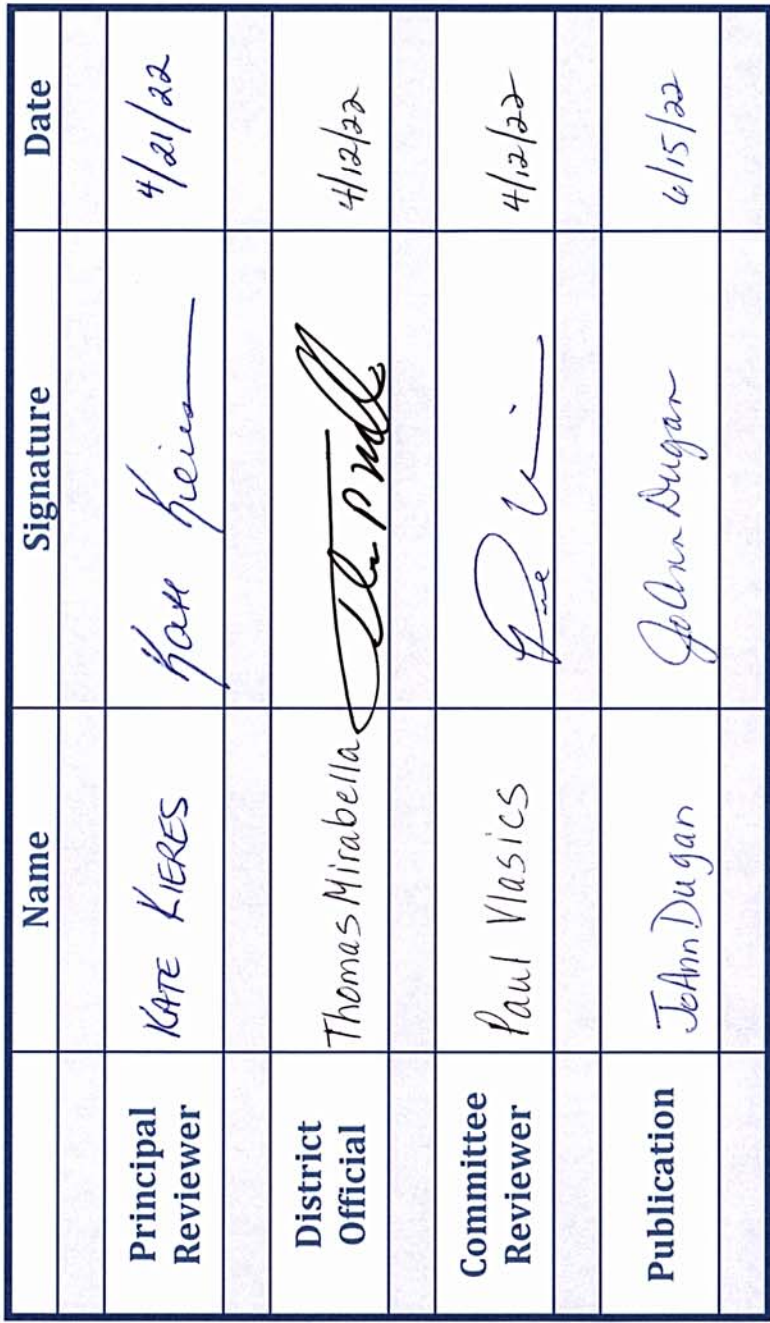 Name Signature Date
Principal
Reviewer
KATE KIERES Kate Kieres 4/21/22
District
Official
Thomas Mirabella 4/12/22
Committee
Reviewer
Paul Vlasics 4/12/22
Publication JoAnn Dugan JoAnn Dugan 6/15/22